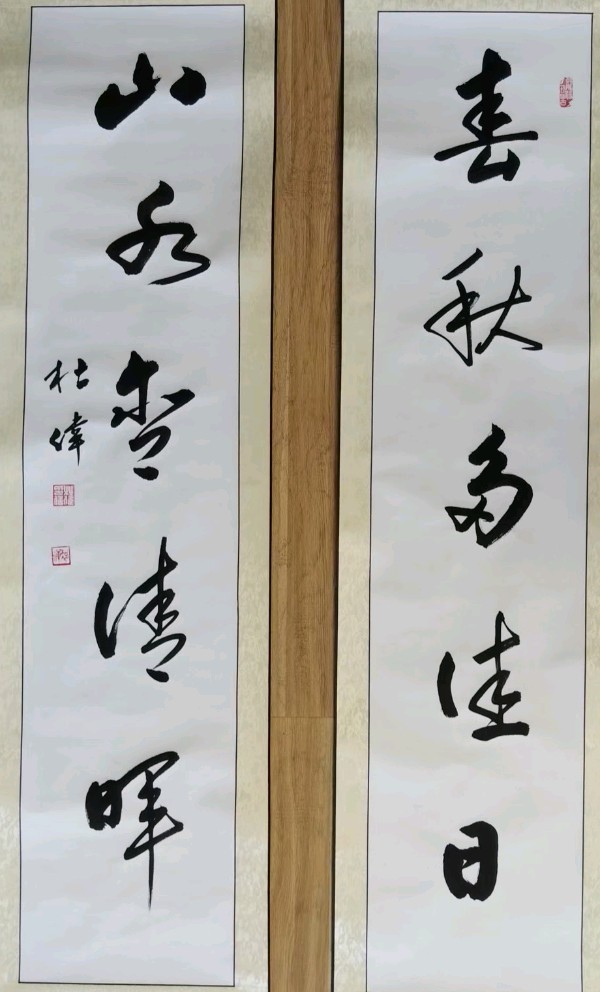 春秋多佳日
山水含清晖
杜偉